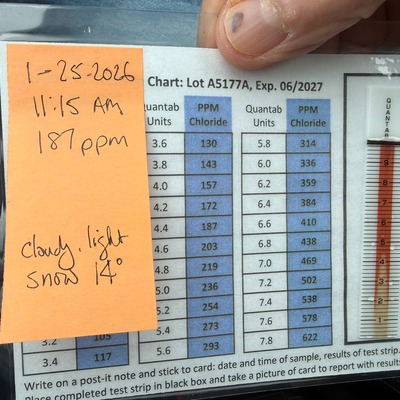 1-25-2026
11:15 AM
187 ppm
cloudy, light
snow 14°
Chart: Lot A5177A, Exp. 06/2027
uantab Units PPM Chloride Quantab Units PPM Chloride
3.6 130 5.8 314
3.8 143 6.0 336
4.0 157 6.2 359
4.2 172 6.4 384
4.4 187 6.6 410
4.6 203 6.8 438
4.8 219 7.0 469
5.0 236 7.2 502
5.2 254 7.4 538
3.2 105 5.4 273 7.6 578
3.4 117 5.6 293 7.8 622
Write on a post-it note and stick to card: date and time of sample, results of test strip.
Place completed test strip in black box and take a picture of card to report with results
QUANTAB
9
8
7
6
5
4
3
2
1